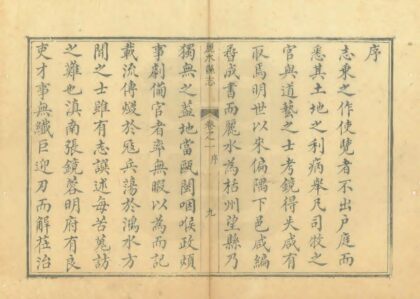 序
志乘之作使覽者不出户庭而
悉其土地之利病舉凡司牧之
官與道藝之士考鏡得失咸有
取焉明世以來偏隅下邑咸編
尋成書而麗水為栝州望縣乃
麗水縣志
卷之一 序
九
獨無之蓋地當甌閩咽喉政煩
事劇備官者率無暇以為而記
載流傳燬於冦兵湯於鴻水方
聞之士雖有志譔述每苦蒐訪
之難也滇南張鏡蓉明府有良
吏才事無纖巨迎刀而解莅治